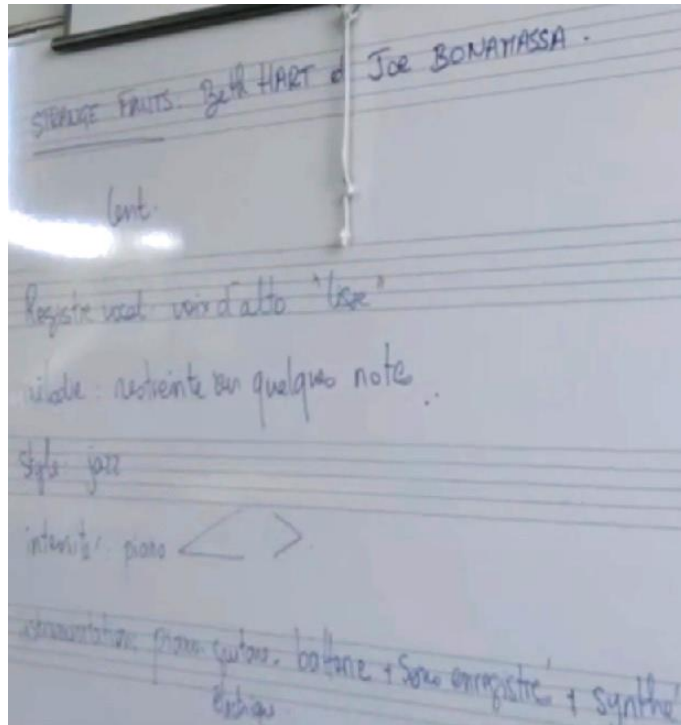 STRANGE FRUITS. Beth HART & Joe BONAMASSA.
lent.
Registre vocal: voix d'alto "lisse"
mélodie: restreinte sur quelques notes
style: jazz
intensité: piano < >
instrumentation: piano, guitare, batterie + sons enregistré + synthé
électrique